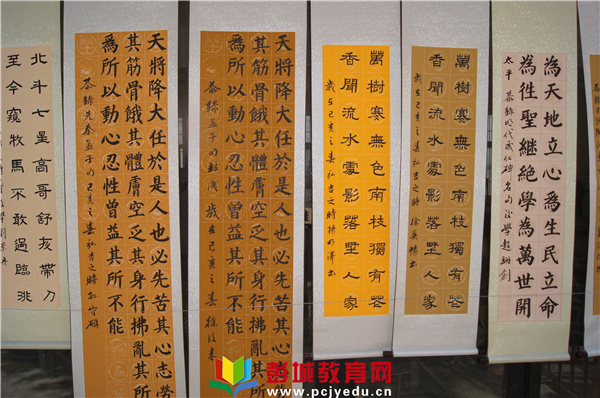 為天地立心為生民立命
為徃聖繼絕學為萬世開
太平
萬樹寒無色南枝獨有花
香聞流水處影落野人家
歲在己亥之
萬樹寒無色南枝獨有花
香聞流水處影落野人家
歲在己亥之
天將降大任於是人也必先苦其心志勞
其筋骨餓其體膚空乏其身行拂亂其所
為所以動心忍性曾益其所不能
歲在己亥之
天將降大任於是人也必先苦其心志勞
其筋骨餓其體膚空乏其身行拂亂其所
為所以動心忍性曾益其所不能
恭錄先秦孟子句己亥之
北斗七星高哥舒夜帶刀
至今窺牧馬不敢過臨洮
彭城教育网
www.pcjyedu.cn